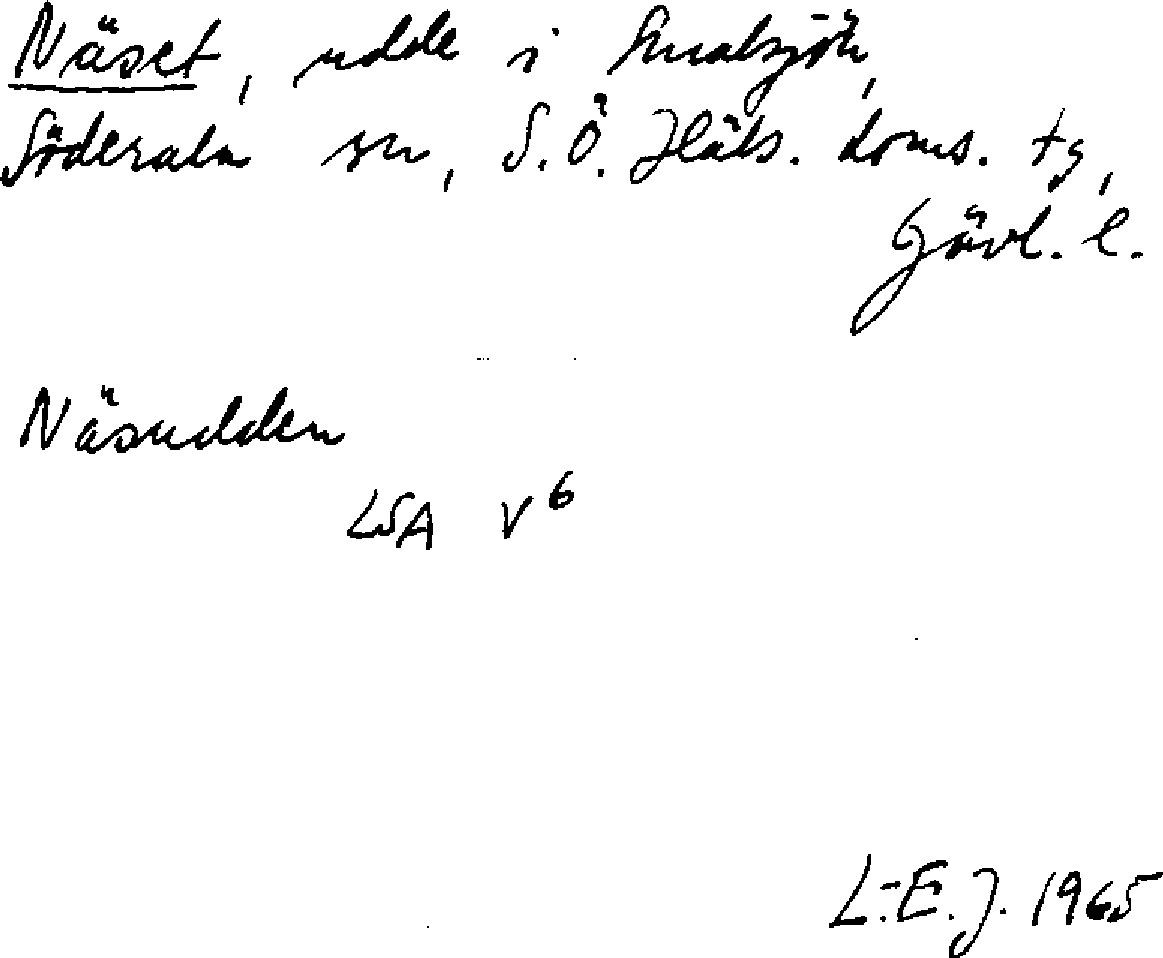 Näset, udde i Smalsjön,
Söderala sn, S.Ö. Häls. doms. tg,
Gävl. l.
Näsudden
LSA V⁶
L.-E.J. 1965